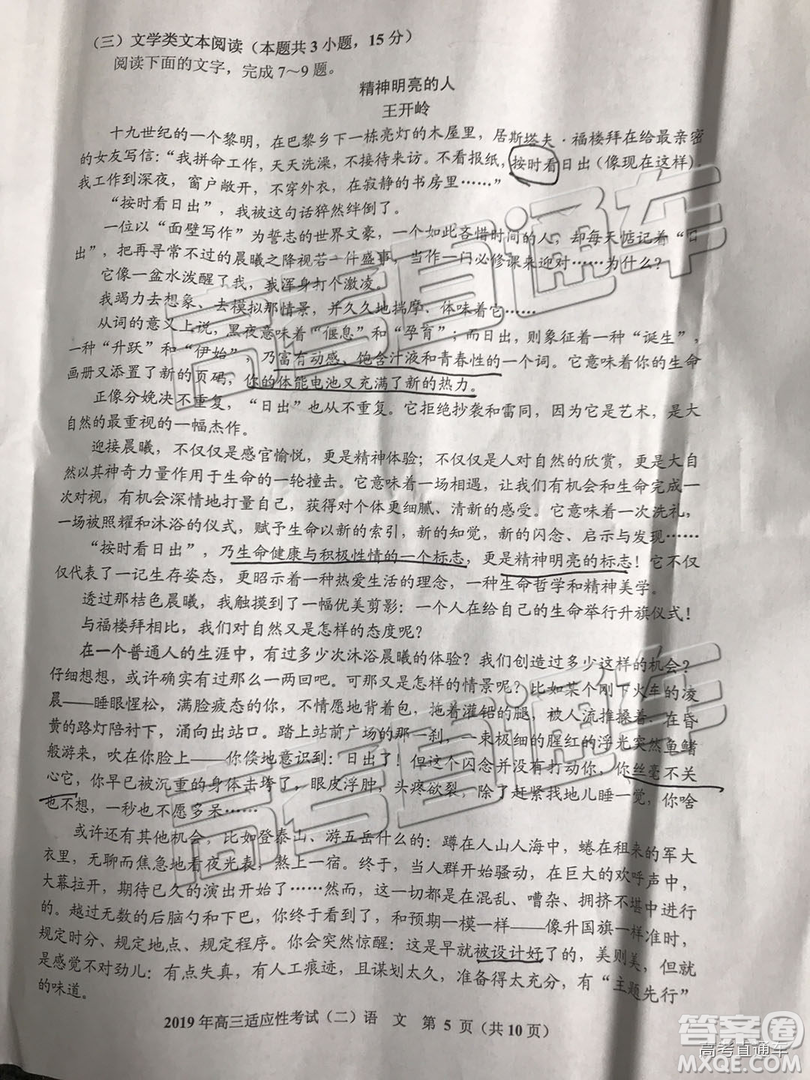 （三）文学类文本阅读（本题共3小题，15分）
阅读下面的文字，完成7～9题。
精神明亮的人
王开岭
十九世纪的一个黎明，在巴黎乡下一栋亮灯的木屋里，居斯塔夫·福楼拜在给最亲密
的女友写信：“我拼命工作，天天洗澡，不接待来访。不看报纸，按时看日出（像现在这样）。
我工作到深夜，窗户敞开，不穿外衣，在寂静的书房里……”
“按时看日出”，我被这句话猝然绊倒了。
一位以“面壁写作”为誓志的世界文豪，一个如此吝惜时间的人，却每天惦记着“日
出”，把再寻常不过的晨曦之降视若一件盛事，当作一门必修课来迎对……为什么？
它像一盆水泼醒了我，我浑身打个激凌。
我竭力去想象、去模拟那情景，并久久地揣摩、体味着它……
从词的意义上说，黑夜意味着“偃息”和“孕育”；而日出，则象征着一种“诞生”，
一种“升跃”和“伊始”，乃富有动感、饱含汁液和青春性的一个词。它意味着你的生命
画册又添置了新的页码，你的体能电池又充满了新的热力。
正像分娩决不重复，“日出”也从不重复。它拒绝抄袭和雷同，因为它是艺术，是大
自然的最重视的一幅杰作。
迎接晨曦，不仅仅是感官愉悦，更是精神体验；不仅仅是人对自然的欣赏，更是大自
然以其神奇力量作用于生命的一轮撞击。它意味着一场相遇，让我们有机会和生命完成一
次对视，有机会深情地打量自己，获得对个体更细腻、清新的感受。它意味着一次洗礼，
一场被照耀和沐浴的仪式，赋予生命以新的索引，新的知觉，新的闪念、启示与发现……
“按时看日出”，乃生命健康与积极性情的一个标志，更是精神明亮的标志！它不仅
仅代表了一记生存姿态，更昭示着一种热爱生活的理念，一种生命哲学和精神美学。
透过那桔色晨曦，我触摸到了一幅优美剪影：一个人在给自己的生命举行升旗仪式！
与福楼拜相比，我们对自然又是怎样的态度呢？
在一个普通人的生涯中，有过多少次沐浴晨曦的体验？我们创造过多少这样的机会？
仔细想想，或许确实有过那么一两回吧。可那又是怎样的情景呢？比如某个刚下火车的凌
晨——睡眼惺松，满脸疲态的你，不情愿地背着包，拖着灌铅的腿，被人流推搡着，在昏
黄的路灯陪衬下，涌向出站口。踏上站前广场的那一刹，一束极细的腥红的浮光突然鱼鳍
般游来，吹在你脸上——你倏地意识到：日出了！但这个闪念并没有打动你，你丝毫不关
心它，你早已被沉重的身体击垮了，眼皮浮肿，头疼欲裂，除了赶紧找地儿睡一觉，你啥
也不想，一秒也不愿多呆……
或许还有其他机会，比如登泰山、游五岳什么的：蹲在人山人海中，蜷在租来的军大
衣里，无聊而焦急地看夜光表，熬上一宿。终于，当人群开始骚动，在巨大的欢呼声中，
大幕拉开，期待已久的演出开始了……然而，这一切都是在混乱、嘈杂、拥挤不堪中进行
的。越过无数的后脑勺和下巴，你终于看到了，和预期一模一样——像升国旗一样准时，
规定时分、规定地点、规定程序。你会突然惊醒：这是早就被设计好了的，美则美，但就
是感觉不对劲儿：有点失真，有人工痕迹，且谋划太久，准备得太充分，有“主题先行”
的味道。
2019年高三适应性考试（二）语 文 第5页（共10页）
高考直通车
高考直通车
答案卷
高考直通车
MXQE.COM